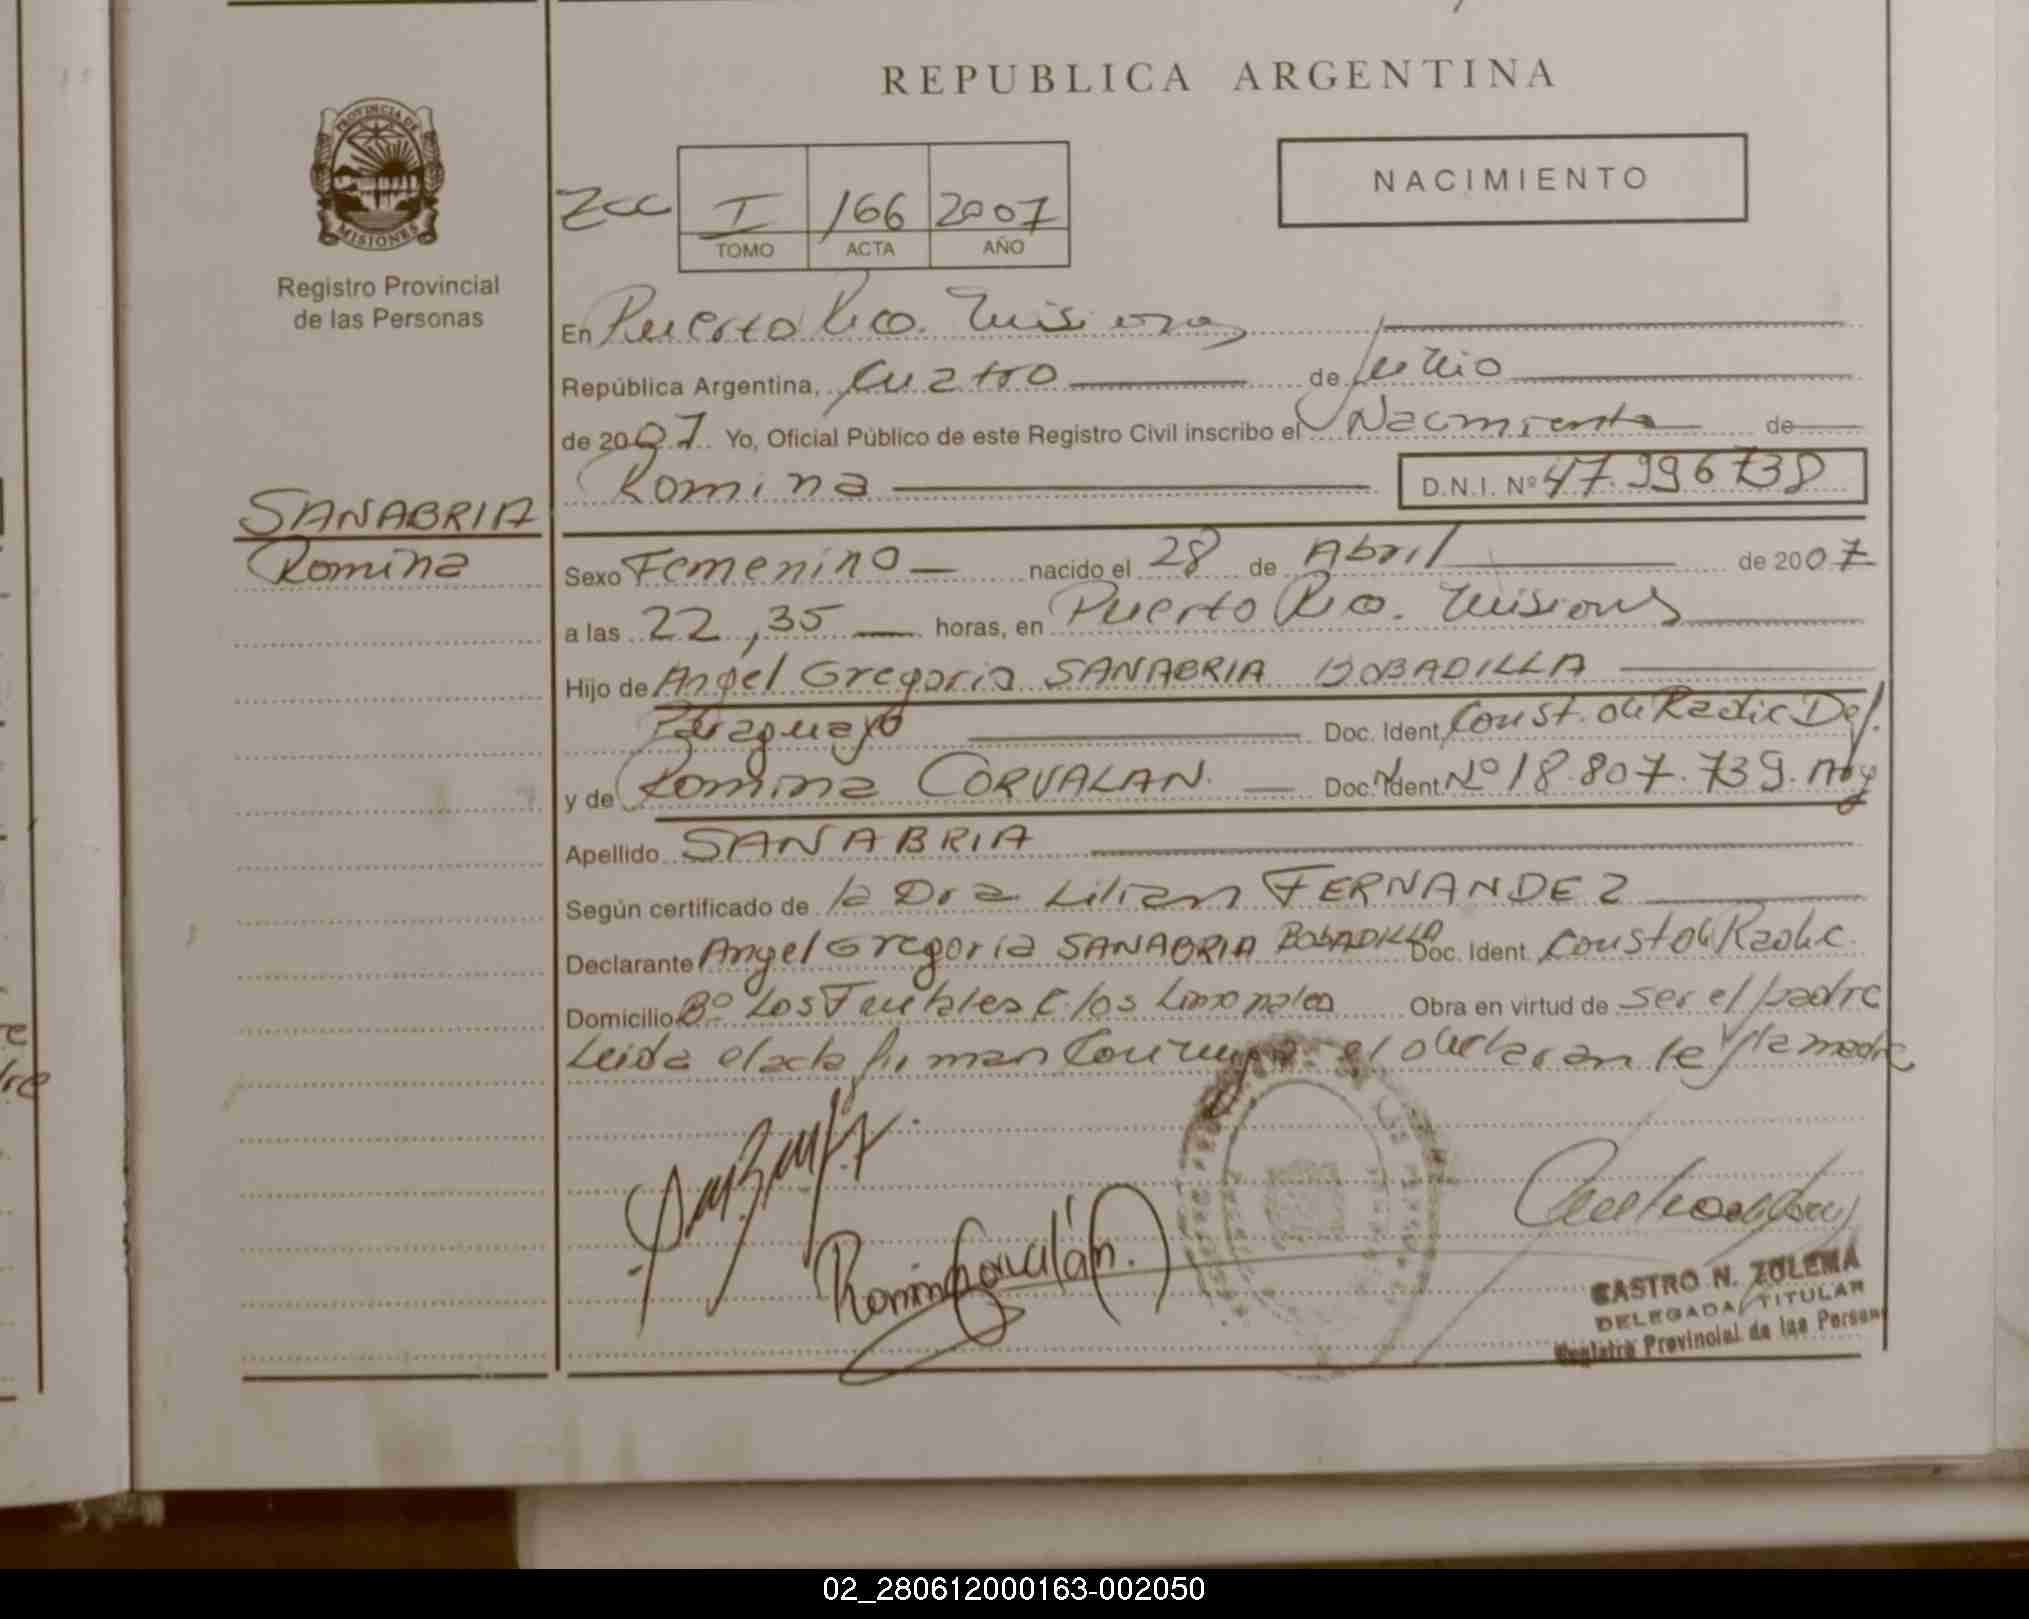 REPUBLICA ARGENTINA
PROVINCIA DE
MISIONES
Registro Provincial
de las Personas
NACIMIENTO
I 166 2007
TOMO ACTA AÑO
En Puerto Rico. Misiones
República Argentina, Cuatro de Junio
de 2007 Yo, Oficial Público de este Registro Civil inscribo el Nacimiento de
Romina D.N.I. Nº 47.996738
SANABRIA
Romina
Sexo Femenino nacido el 28 de Abril de 2007
a las 22,35 horas, en Puerto Rico. Misiones
Hijo de Angel Gregorio SANABRIA BOBADILLA
Paraguayo Doc. Ident. Const. de Radic Def.
y de Romina CORVALAN. Doc. Ident Nº 18.807.739. Arg
Apellido SANABRIA
Según certificado de la Dra Lilian FERNANDEZ
Declarante Angel Gregorio SANABRIA BOBADILLA Doc. Ident. Const de Radic.
Domicilio Bº Los Limonales Obra en virtud de ser el padre
Leida el acta firman conmigo el declarante y la madre
Romina Corvalán.
CASTRO N. ZULEMA
DELEGADA TITULAR
Registro Provincial de las Person
02_280612000163-002050